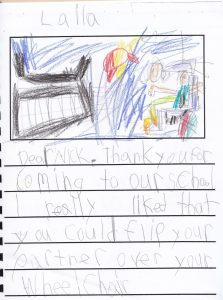 Lalla
Dear NICK. Thank you for
coming to our school
I really liked that
you could flip your
partner over your
wheelchair